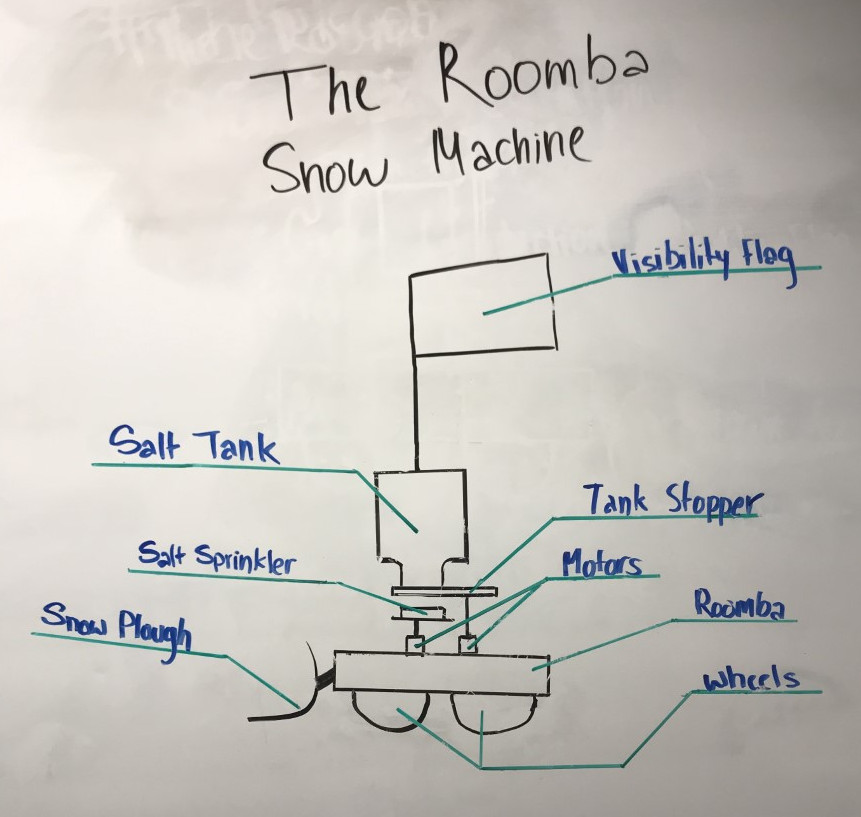 The Roomba
Snow Machine
Visibility Flag
Salt Tank
Tank Stopper
Salt Sprinkler
Motors
Snow Plough
Roomba
Wheels